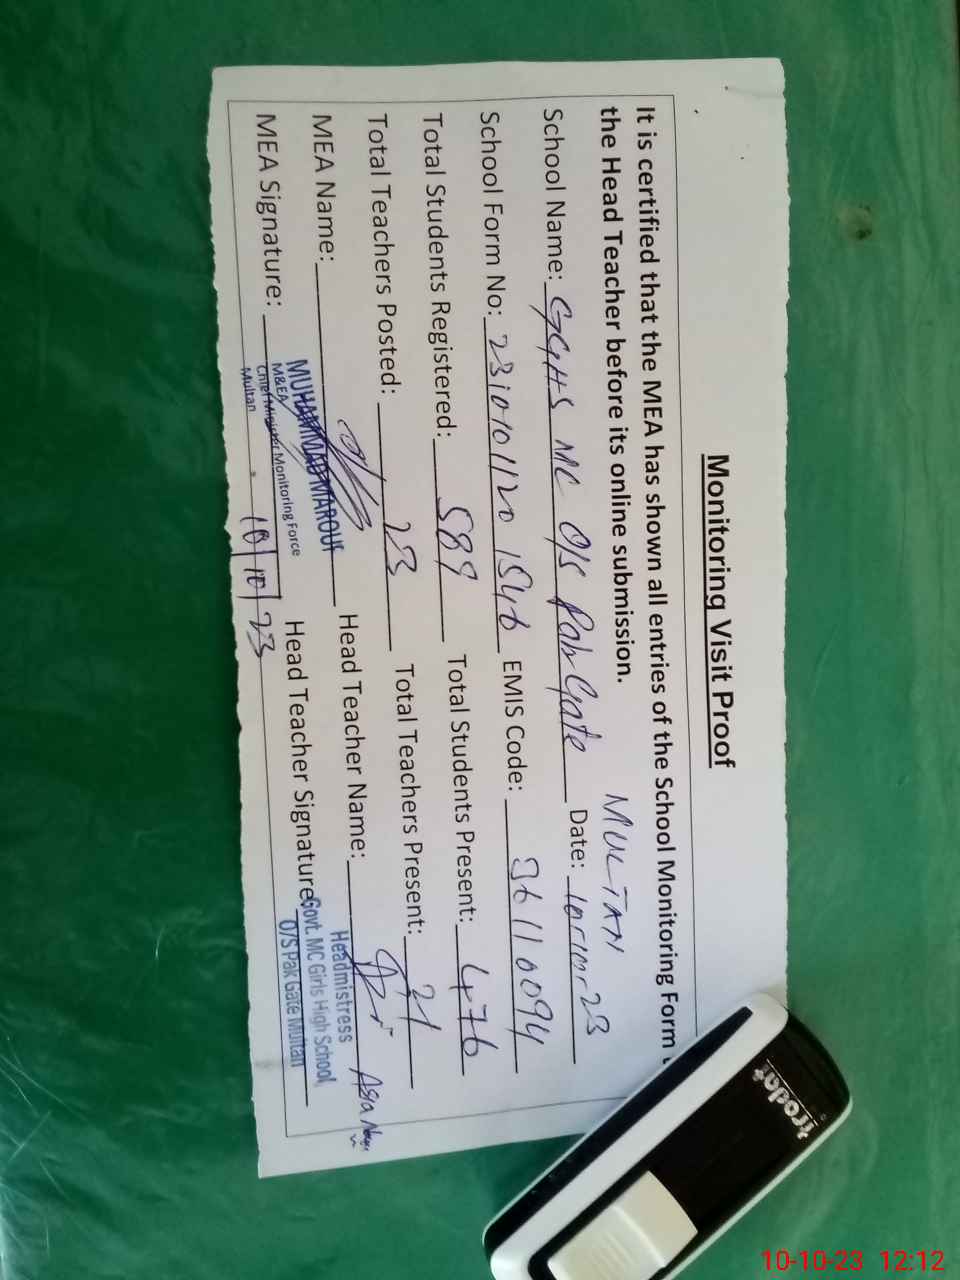 Monitoring Visit Proof
It is certified that the MEA has shown all entries of the School Monitoring Form
the Head Teacher before its online submission.
MULTAN
School Name: GGHS MC O/S Pak Gate Date: 10-10-23
School Form No: EMIS Code: 36110094
Total Students Registered: 589 Total Students Present: 476
Total Teachers Posted: 23 Total Teachers Present: 21
MEA Name: MUHAMMAD MAROUF Head Teacher Name: Asia
M&EA
Chief Minister Monitoring Force
Multan
Headmistress
Govt. MC Girls High School
O/S Pak Gate Multan
MEA Signature: 10/10/23 Head Teacher Signature
trodat
10-10-23 12:12